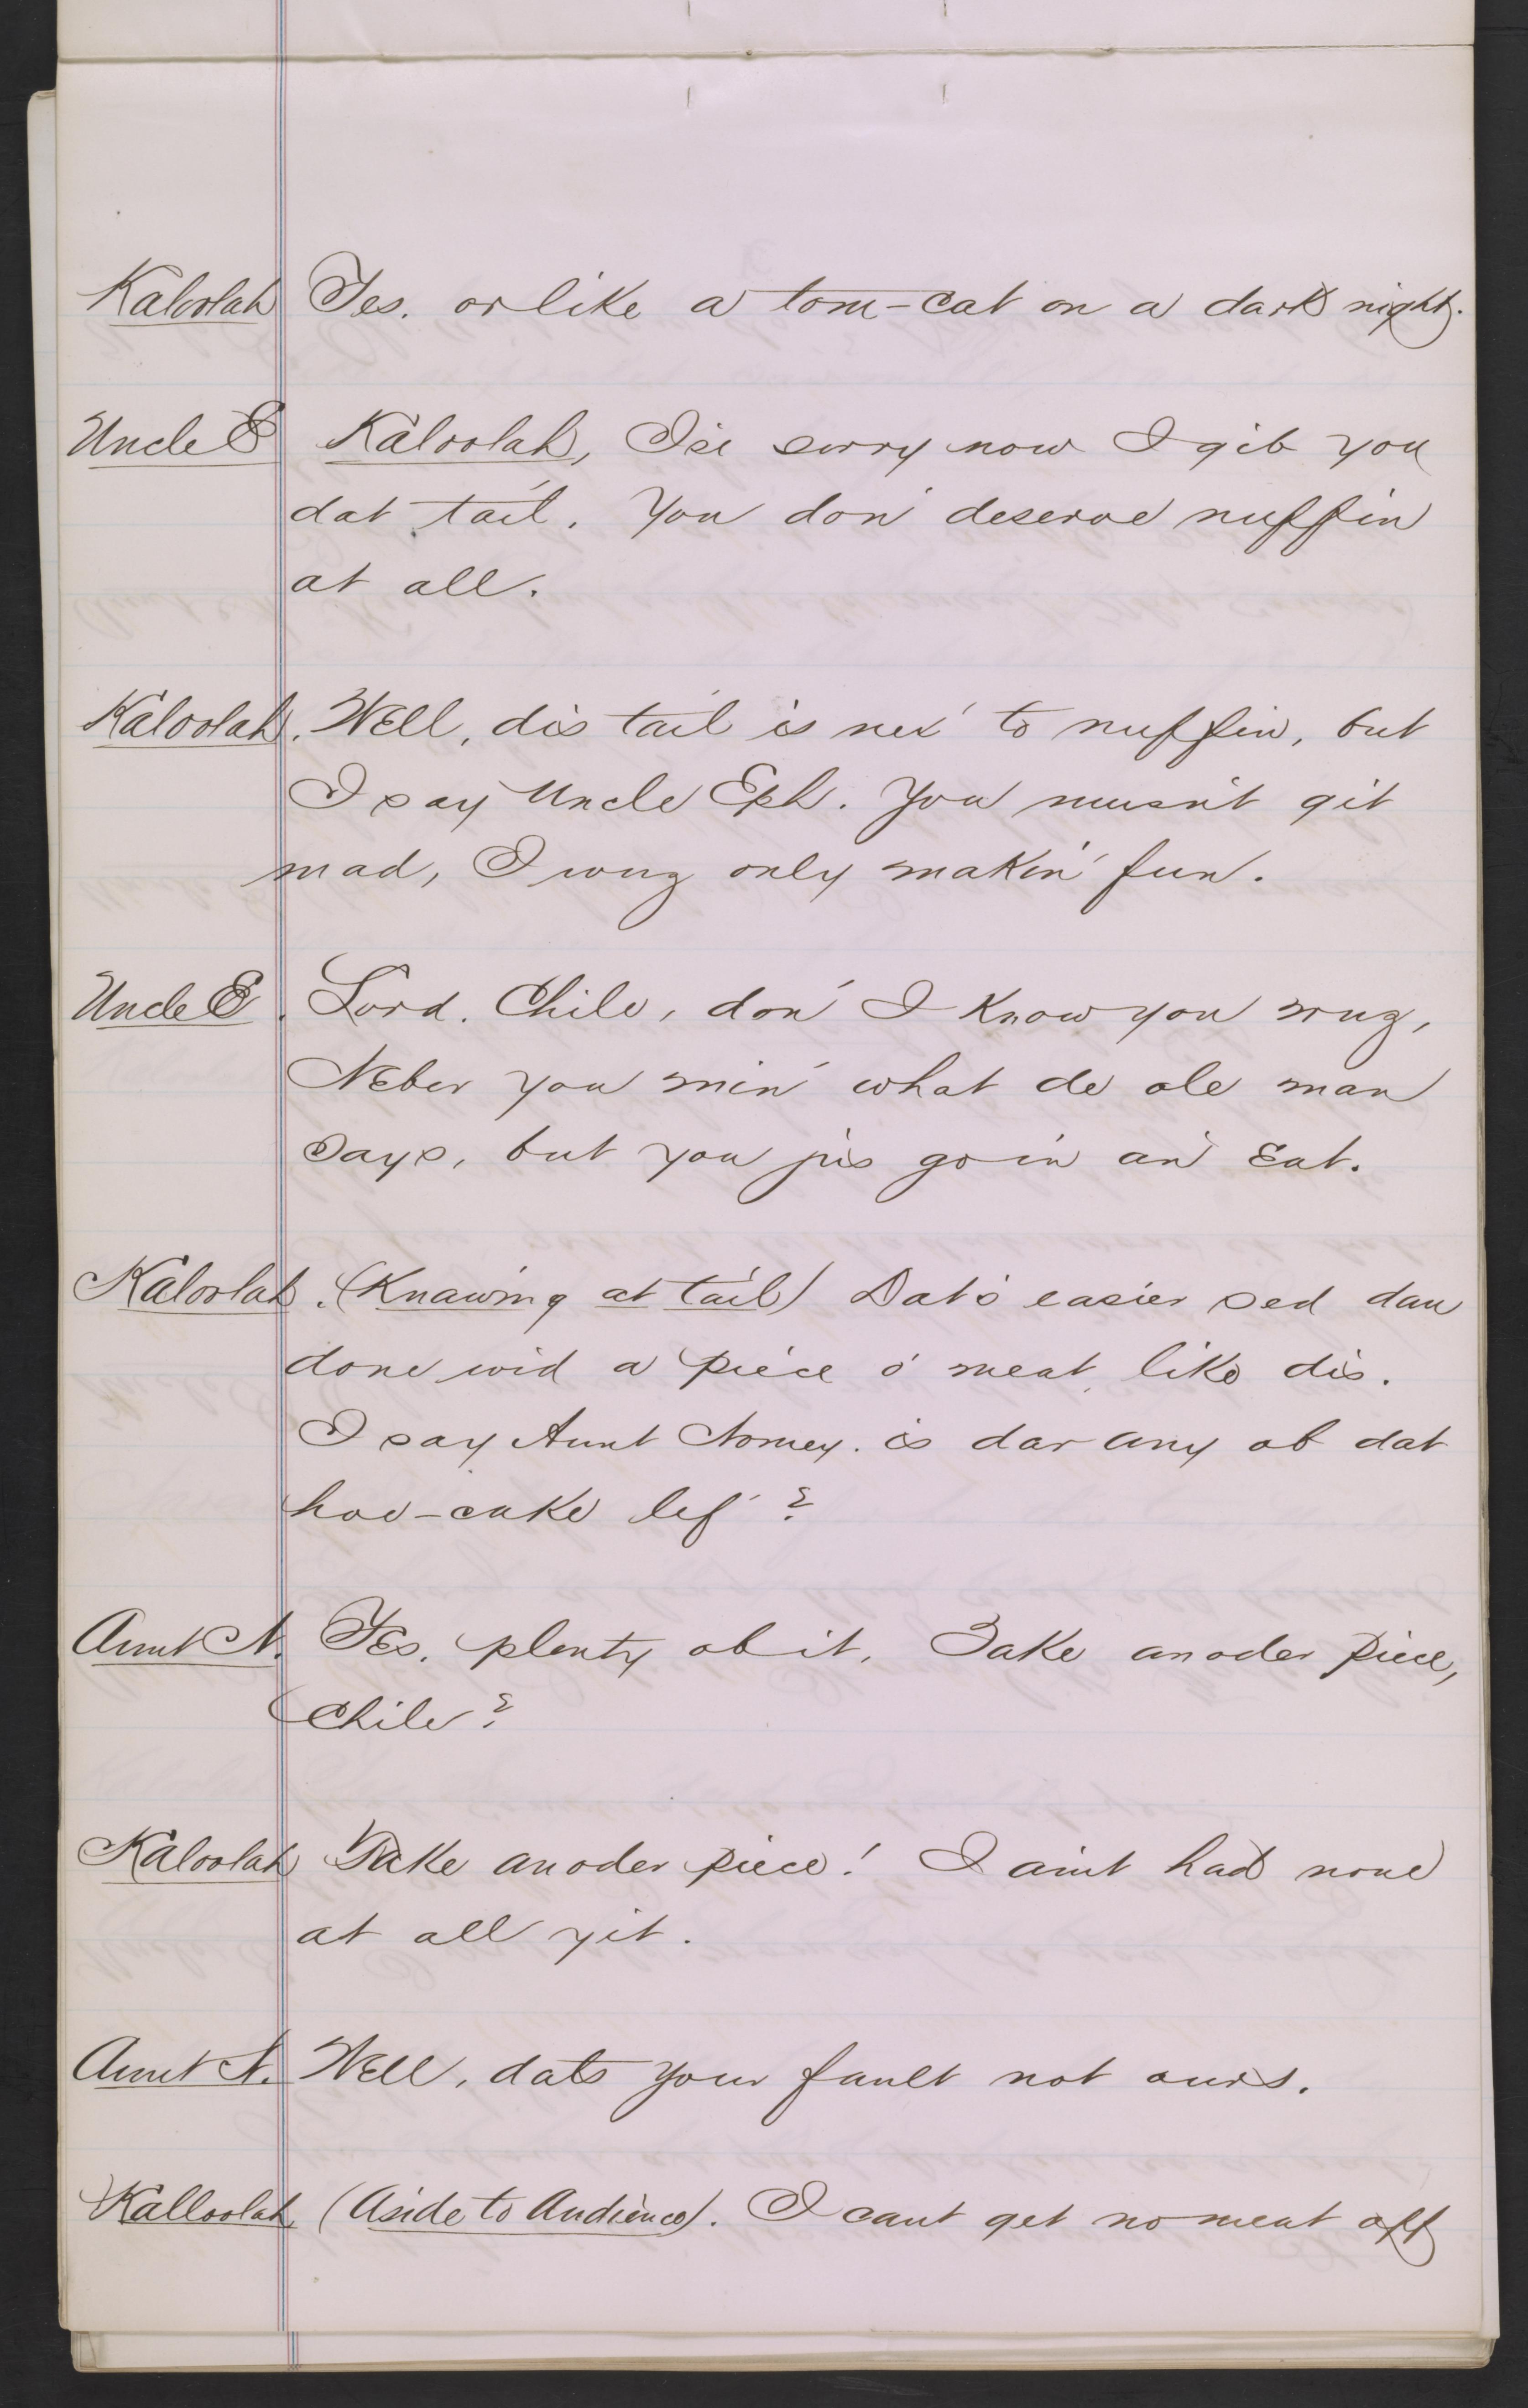 Kaloolah Yes. or like a tom-cat on a dark night.
Uncle E Kaloolah, I'se sorry now I gib you
dat tail. You don' deserve nuffin
at all.
Kaloolah. Well, dis tail is nex' to nuffin, but
I say Uncle Eph. You musn't git
mad, I wuz only makin' fun.
Uncle E. Lord. Chile, don' I know you wuz,
Neber you min' what de ole man
says, but you jis go in an' eat.
Kaloolah. (Knawing at tail) Dat's easier sed dan
done wid a piece o' meat like dis.
I say Aunt Nomey. is dar any ob dat
hoe-cake lef'?
Aunt N. Yes, plenty ob it. Take anoder piece,
Chile?
Kaloolah Take anoder piece! I aint had none
at all yit.
Aunt N. Well, dats your fault not ours.
Kalloolah (Aside to Audience). I cant get no meat off